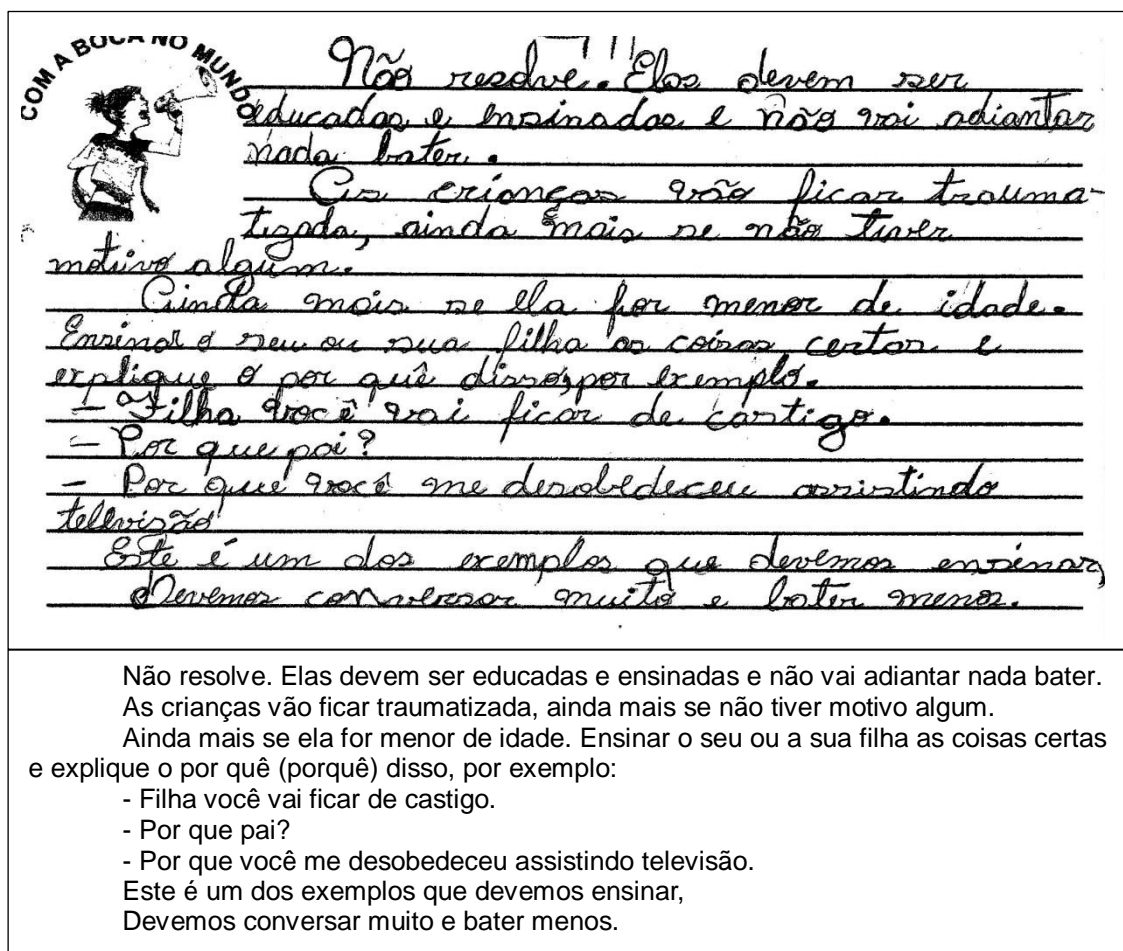 COM A BOCA NO MUNDO
Não resolve. Elas devem ser
educadas e ensinadas e não vai adiantar
nada bater.
As crianças vão ficar trauma-
tizada, ainda mais se não tiver
motivo algum.
Ainda mais se ela for menor de idade.
Ensinar o seu ou sua filha as coisas certas e
explique o por quê disso, por exemplo.
- Filha você vai ficar de castigo.
- Por que pai?
- Por que você me desobedeceu assistindo
televisão
Este é um dos exemplos que devemos ensinar,
Devemos conversar muito e bater menos.
Não resolve. Elas devem ser educadas e ensinadas e não vai adiantar nada bater.
As crianças vão ficar traumatizada, ainda mais se não tiver motivo algum.
Ainda mais se ela for menor de idade. Ensinar o seu ou a sua filha as coisas certas
e explique o por quê (porquê) disso, por exemplo:
- Filha você vai ficar de castigo.
- Por que pai?
- Por que você me desobedeceu assistindo televisão.
Este é um dos exemplos que devemos ensinar,
Devemos conversar muito e bater menos.